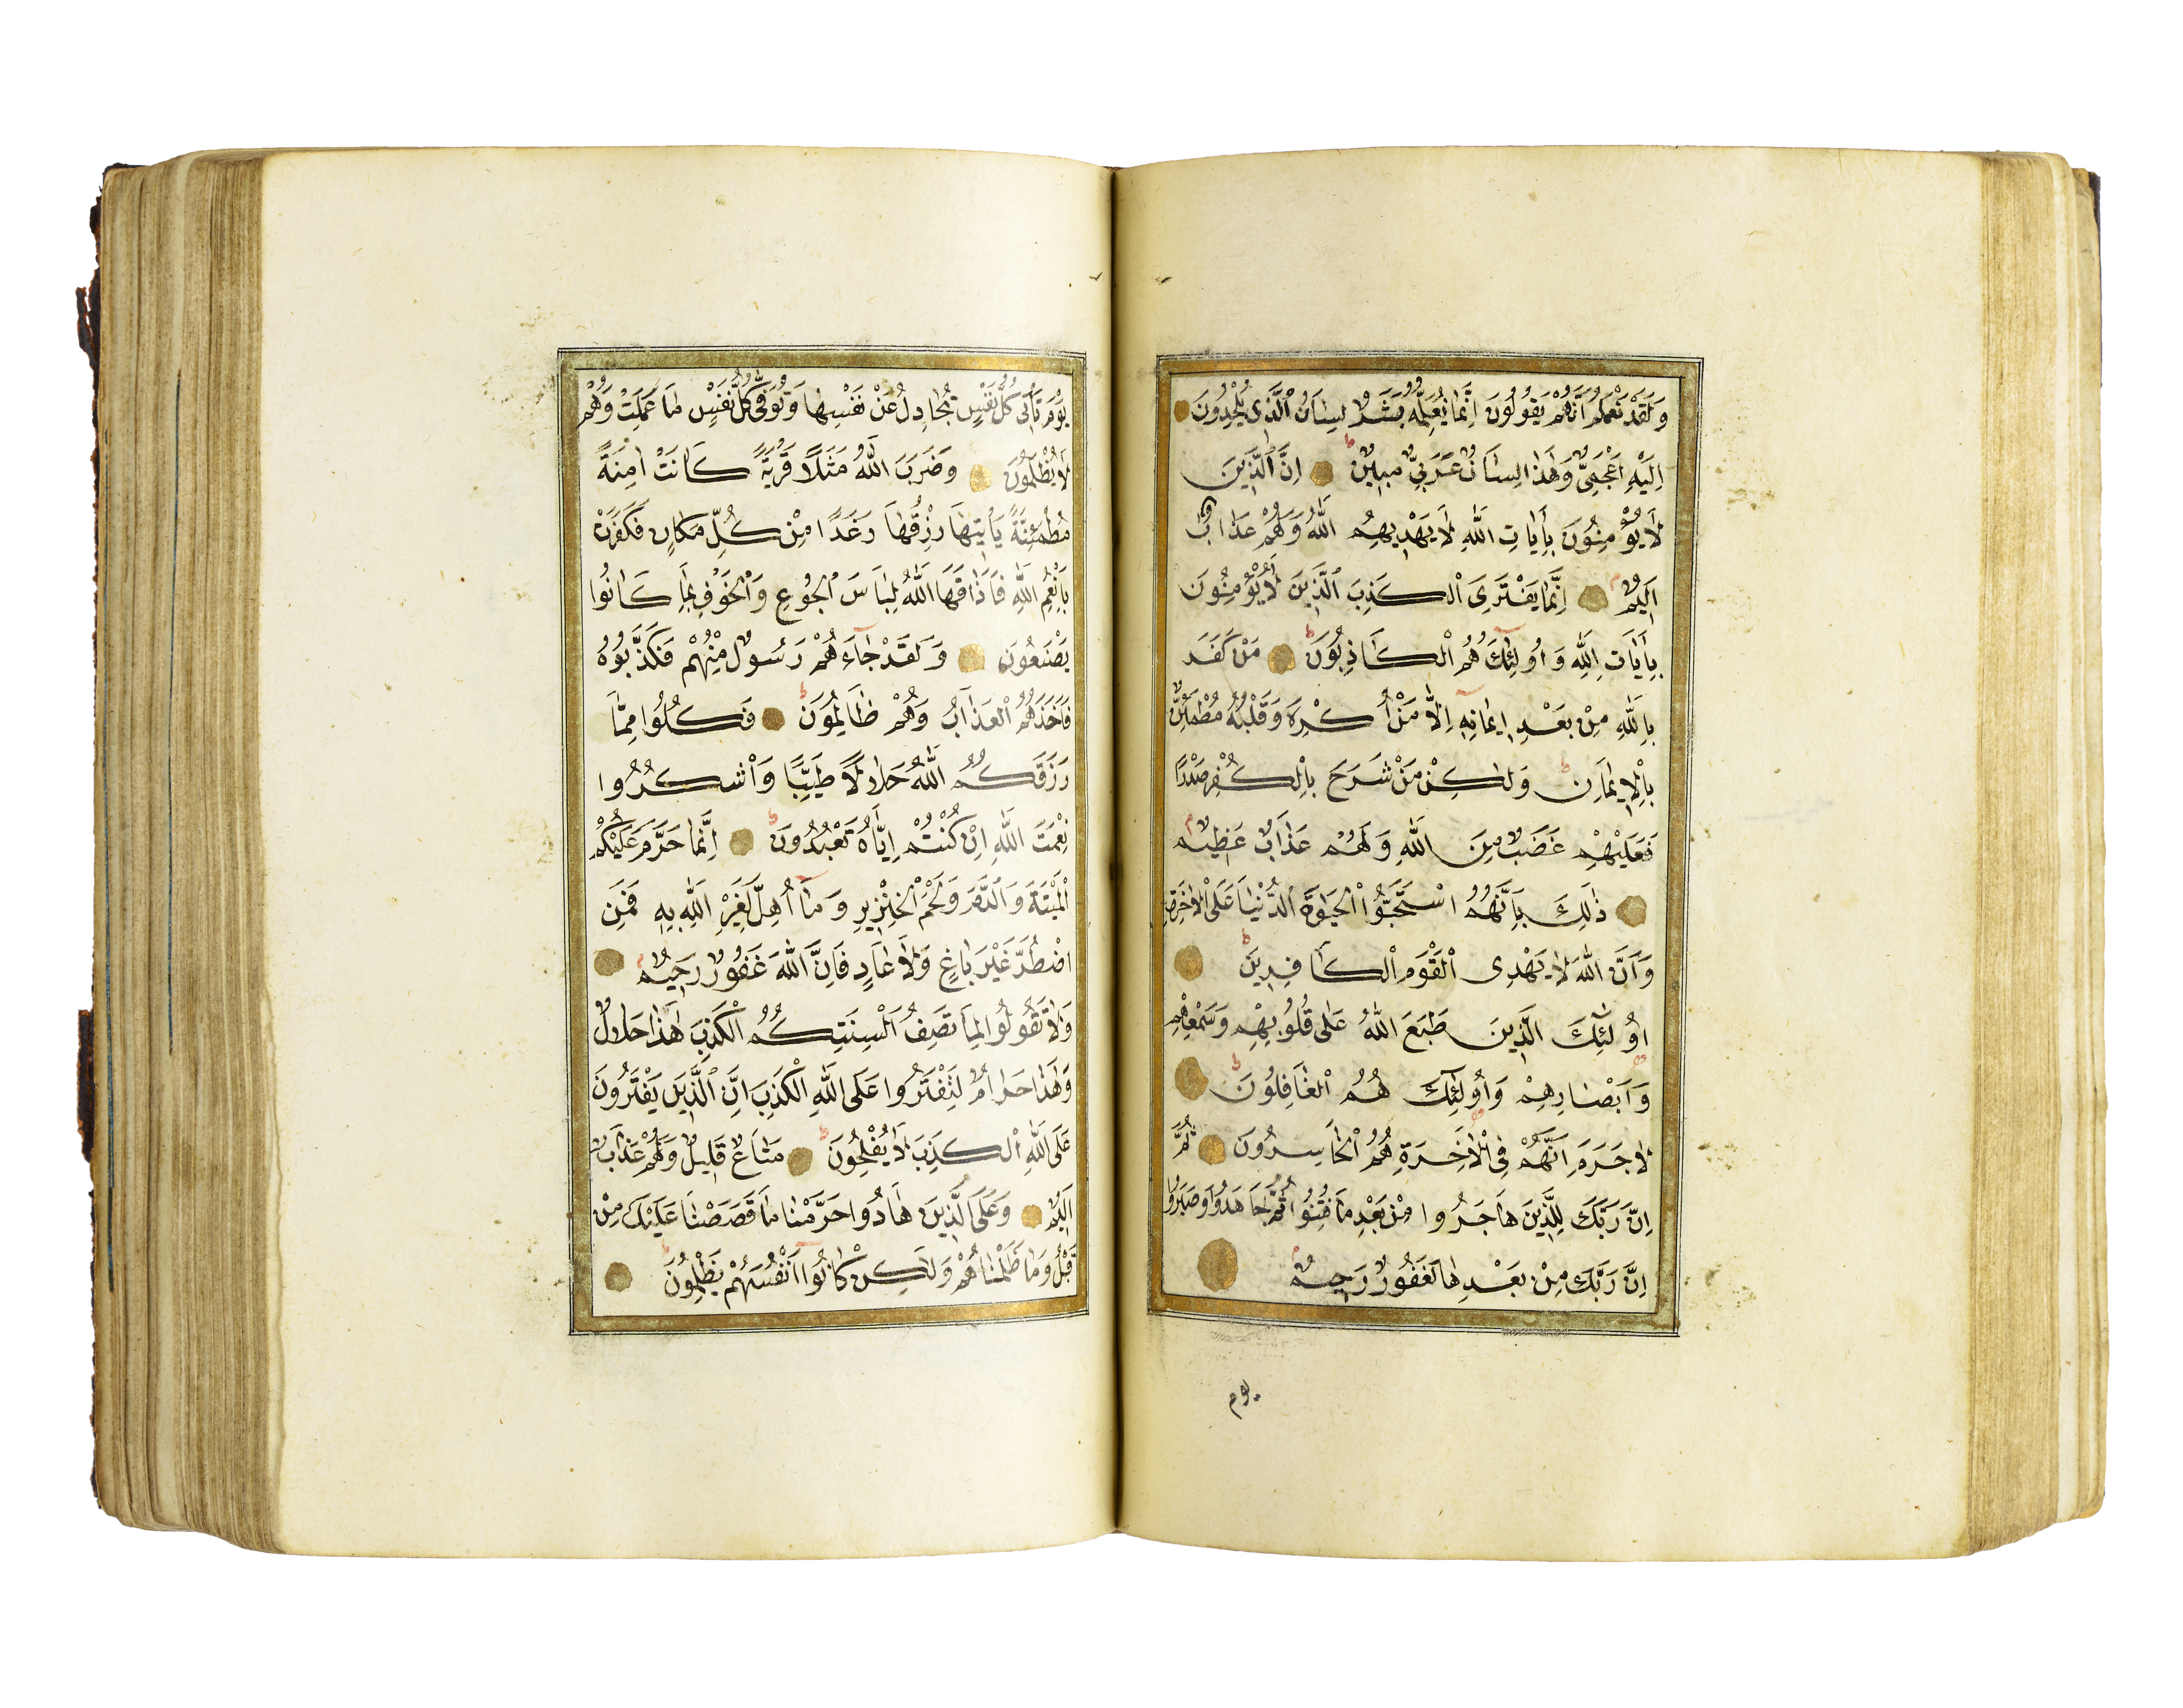 وَلَقَدْ نَعْلَمُ اَنَّهُمْ يَقُولُونَ اِنَّمَا يُعَلِّمُهُ بَشَرٌ لِسَانُ الَّذِى يُلْحِدُونَ
اِلَيْهِ اَعْجَمِىٌّ وَهٰذَا لِسَانٌ عَرَبِىٌّ مُبِينٌ اِنَّ الَّذِينَ
لَا يُؤْمِنُونَ بِاٰيَاتِ اللّٰهِ لَا يَهْدِيهِمُ اللّٰهُ وَلَهُمْ عَذَابٌ
اَلِيمٌ اِنَّمَا يَفْتَرِى الْكَذِبَ الَّذِينَ لَا يُؤْمِنُونَ
بِاٰيَاتِ اللّٰهِ وَاُولٰئِكَ هُمُ الْكَاذِبُونَ مَنْ كَفَرَ
بِاللّٰهِ مِنْ بَعْدِ اِيمَانِهِ اِلَّا مَنْ اُكْرِهَ وَقَلْبُهُ مُطْمَئِنٌّ
بِالْاِيمَانِ وَلٰكِنْ مَنْ شَرَحَ بِالْكُفْرِ صَدْرًا
فَعَلَيْهِمْ غَضَبٌ مِنَ اللّٰهِ وَلَهُمْ عَذَابٌ عَظِيمٌ
ذٰلِكَ بِاَنَّهُمُ اسْتَحَبُّوا الْحَيٰوةَ الدُّنْيَا عَلَى الْاٰخِرَةِ
وَاَنَّ اللّٰهَ لَا يَهْدِى الْقَوْمَ الْكَافِرِينَ
اُولٰئِكَ الَّذِينَ طَبَعَ اللّٰهُ عَلٰى قُلُوبِهِمْ وَسَمْعِهِمْ
وَاَبْصَارِهِمْ وَاُولٰئِكَ هُمُ الْغَافِلُونَ
لَا جَرَمَ اَنَّهُمْ فِى الْاٰخِرَةِ هُمُ الْخَاسِرُونَ ثُمَّ
اِنَّ رَبَّكَ لِلَّذِينَ هَاجَرُوا مِنْ بَعْدِ مَا فُتِنُوا ثُمَّ جَاهَدُوا وَصَبَرُوا
اِنَّ رَبَّكَ مِنْ بَعْدِهَا لَغَفُورٌ رَحِيمٌ
يوم
يَوْمَ تَأْتِى كُلُّ نَفْسٍ تُجَادِلُ عَنْ نَفْسِهَا وَتُوَفّٰى كُلُّ نَفْسٍ مَا عَمِلَتْ وَهُمْ
لَا يُظْلَمُونَ وَضَرَبَ اللّٰهُ مَثَلًا قَرْيَةً كَانَتْ اٰمِنَةً
مُطْمَئِنَّةً يَأْتِيهَا رِزْقُهَا رَغَدًا مِنْ كُلِّ مَكَانٍ فَكَفَرَتْ
بِاَنْعُمِ اللّٰهِ فَاَذَاقَهَا اللّٰهُ لِبَاسَ الْجُوعِ وَالْخَوْفِ بِمَا كَانُوا
يَصْنَعُونَ وَلَقَدْ جَاءَهُمْ رَسُولٌ مِنْهُمْ فَكَذَّبُوهُ
فَاَخَذَهُمُ الْعَذَابُ وَهُمْ ظَالِمُونَ فَكُلُوا مِمَّا
رَزَقَكُمُ اللّٰهُ حَلَالًا طَيِّبًا وَاشْكُرُوا
نِعْمَتَ اللّٰهِ اِنْ كُنْتُمْ اِيَّاهُ تَعْبُدُونَ اِنَّمَا حَرَّمَ عَلَيْكُمُ
الْمَيْتَةَ وَالدَّمَ وَلَحْمَ الْخِنْزِيرِ وَمَا اُهِلَّ لِغَيْرِ اللّٰهِ بِهِ فَمَنِ
اضْطُرَّ غَيْرَ بَاغٍ وَلَا عَادٍ فَاِنَّ اللّٰهَ غَفُورٌ رَحِيمٌ
وَلَا تَقُولُوا لِمَا تَصِفُ اَلْسِنَتُكُمُ الْكَذِبَ هٰذَا حَلَالٌ
وَهٰذَا حَرَامٌ لِتَفْتَرُوا عَلَى اللّٰهِ الْكَذِبَ اِنَّ الَّذِينَ يَفْتَرُونَ
عَلَى اللّٰهِ الْكَذِبَ لَا يُفْلِحُونَ مَتَاعٌ قَلِيلٌ وَلَهُمْ عَذَابٌ
اَلِيمٌ وَعَلَى الَّذِينَ هَادُوا حَرَّمْنَا مَا قَصَصْنَا عَلَيْكَ مِنْ
قَبْلُ وَمَا ظَلَمْنَاهُمْ وَلٰكِنْ كَانُوا اَنْفُسَهُمْ يَظْلِمُونَ